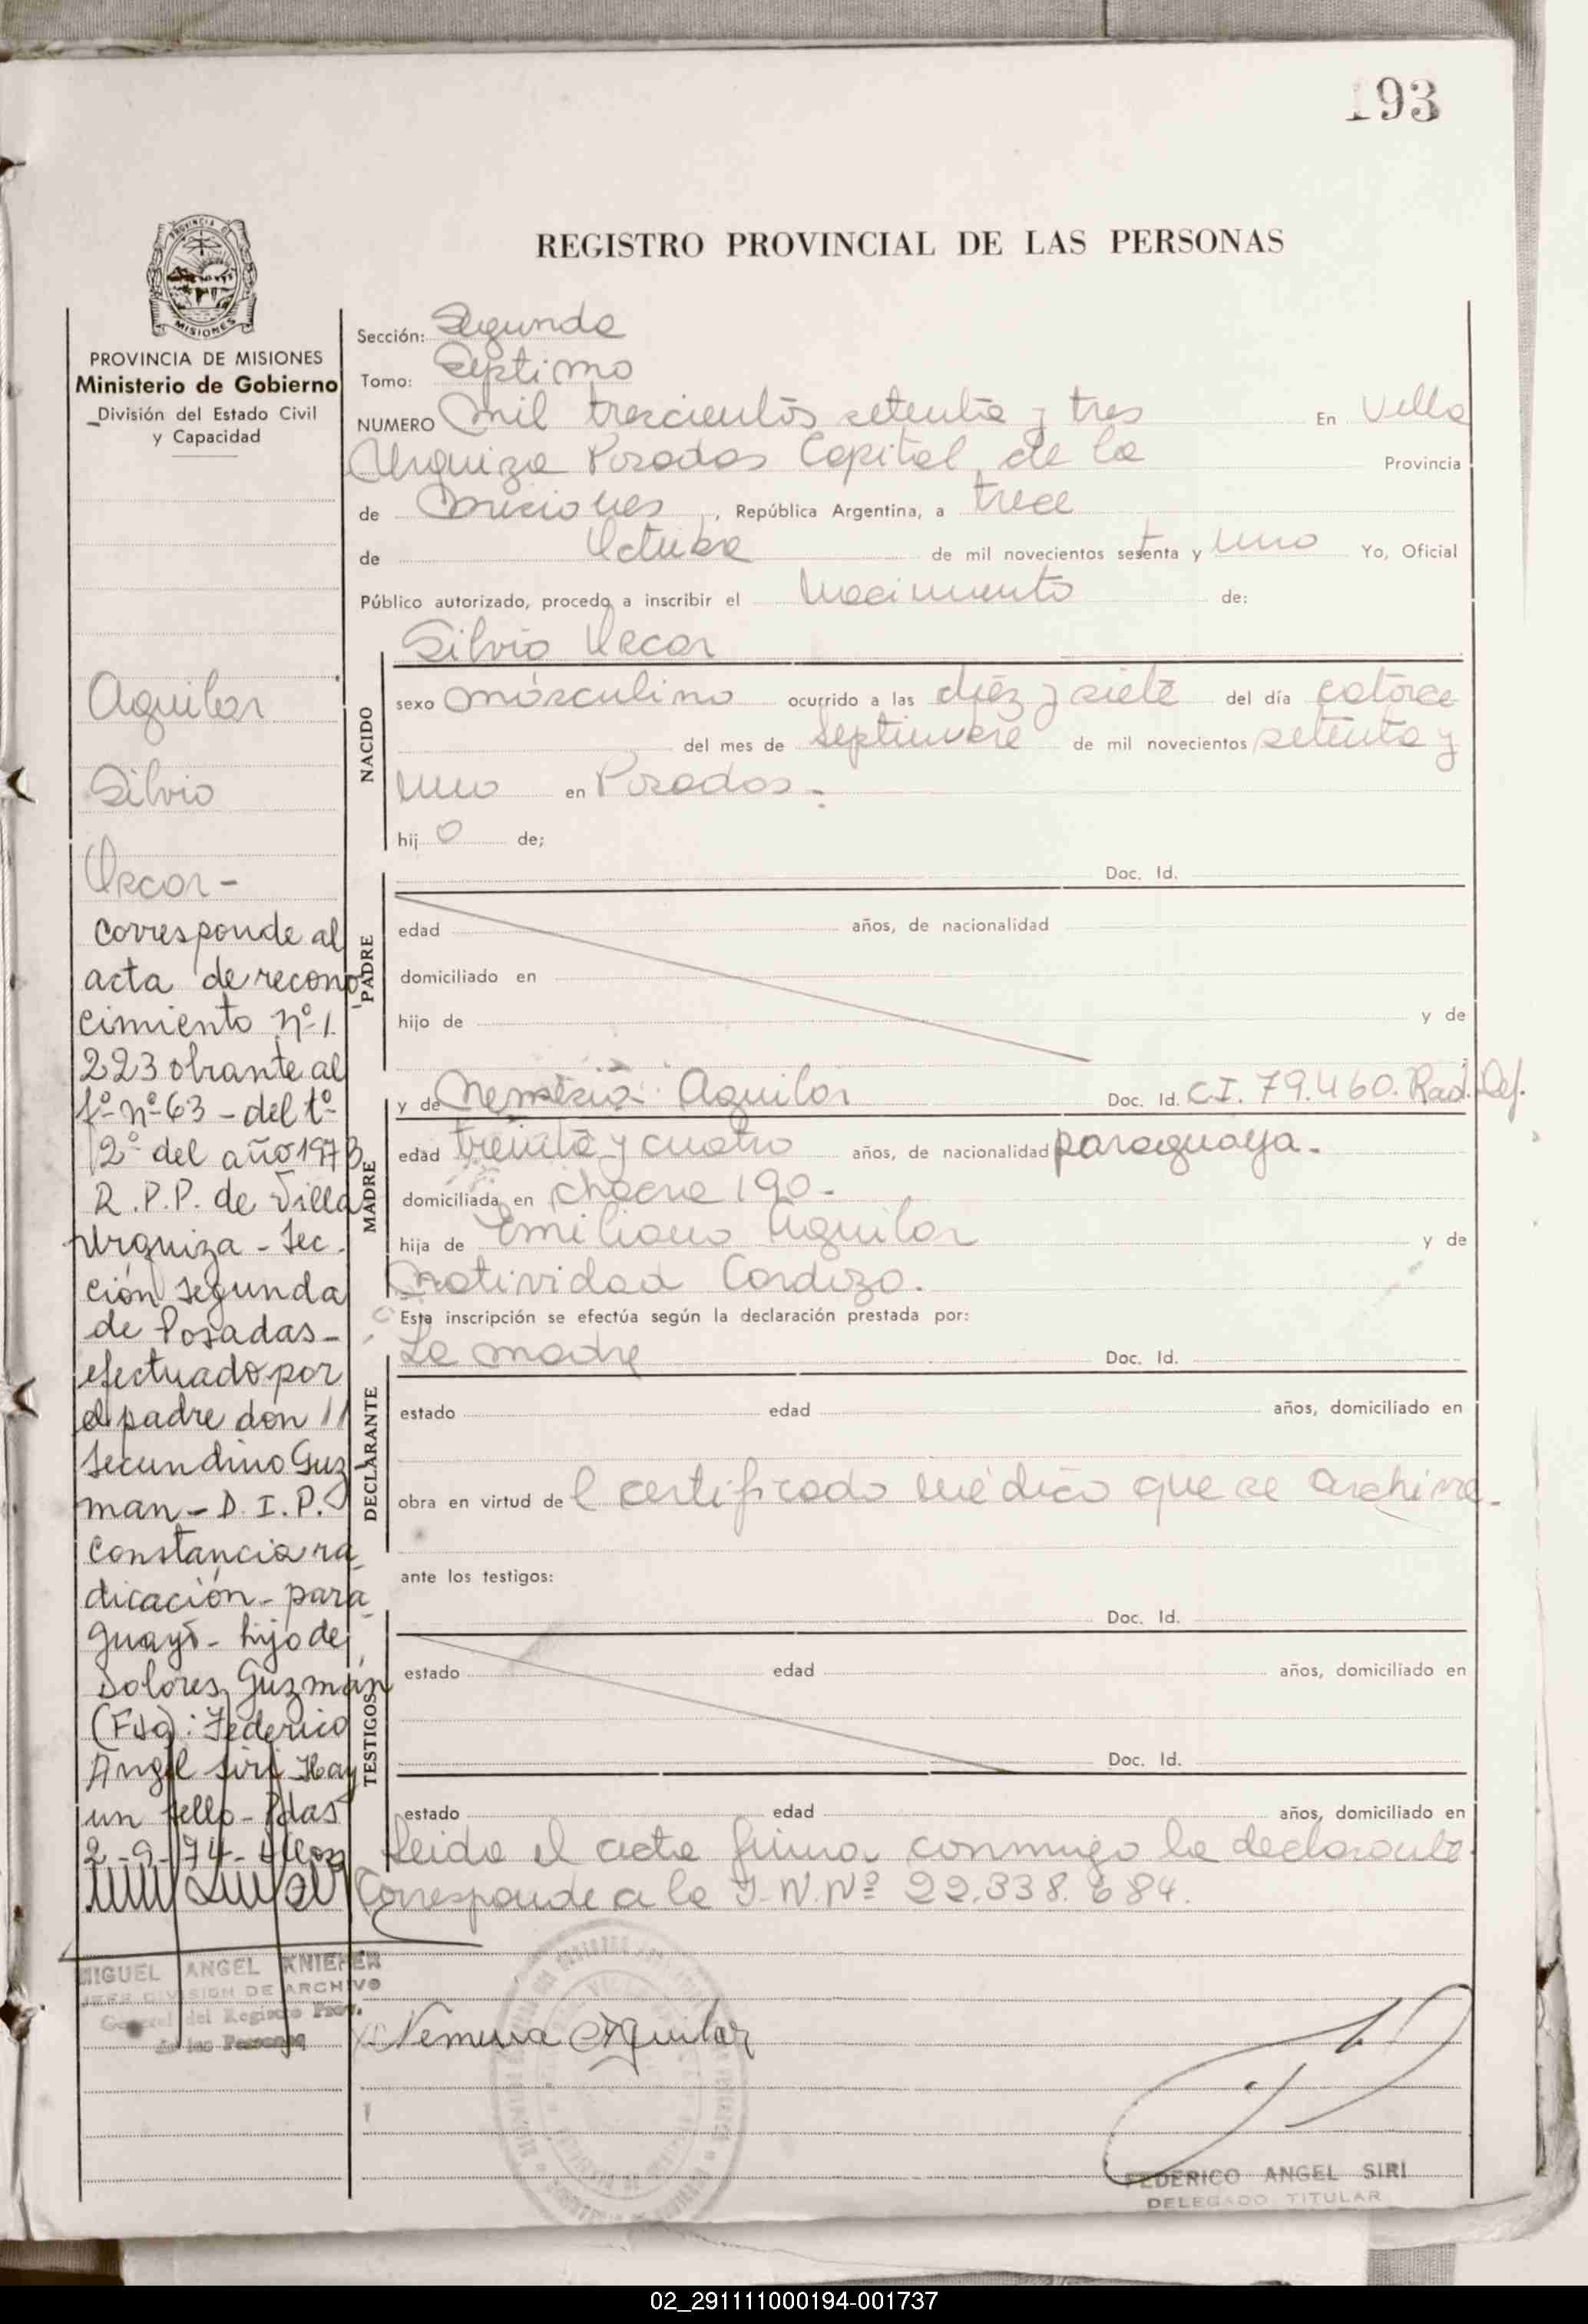 193
REGISTRO PROVINCIAL DE LAS PERSONAS
MISIONES
PROVINCIA DE MISIONES
Ministerio de Gobierno
División del Estado Civil
y Capacidad
Aguilar
Silvio
Oscar -
Corresponde al
acta de recono
cimiento nº 1.
223 obrante al
fº nº 63 - del tº
2º del año 1973
R.P.P. de Villa
Urquiza - Sec.
ción Segunda
de Posadas -
efectuado por
el padre don //
Secundino Guz
man - D.I.P.
Constancia ra
dicación - para
guayo - hijo de
Dolores Guzmán
(Fdo): Federico
Angel Siri Hay
un sello - Pdas
2 - 9 - 74 -
MIGUEL ANGEL KNIEFER
JEFE DIVISION DE ARCHIVO
General del Registro Prov.
de las Personas
Sección: Segunda
Tomo: Septimo
NUMERO Mil trescientos setenta y tres En Villa
Urquiza Posadas Capital de la Provincia
de Misiones, República Argentina, a trece
de Octubre de mil novecientos setenta y uno Yo, Oficial
Público autorizado, procedo a inscribir el Nacimiento de:
Silvio Oscar
NACIDO
sexo masculino ocurrido a las diez y siete del día catorce
del mes de Septiembre de mil novecientos setenta y
uno en Posadas.-
hij o de;
PADRE
Doc. Id.
edad años, de nacionalidad
domiciliado en
hijo de y de
MADRE
y de Nemesia Aguilar Doc. Id. C.I. 79.460. Rad. Def.
edad treinta y cuatro años, de nacionalidad paraguaya.-
domiciliada en chacra 190-
hija de Emiliano Aguilar y de
Natividad Cardozo.
Esta inscripción se efectúa según la declaración prestada por:
DECLARANTE
La madre Doc. Id.
estado edad años, domiciliado en
obra en virtud de l certificado médico que se archiva.-
ante los testigos:
TESTIGOS
Doc. Id.
estado edad años, domiciliado en
Doc. Id.
estado edad años, domiciliado en
Leida el acta firma conmigo la declarante.
Corresponde a la I.N.Nº 22.338.684.
Nemesia Aguilar
FEDERICO ANGEL SIRI
DELEGADO TITULAR
02_291111000194-001737